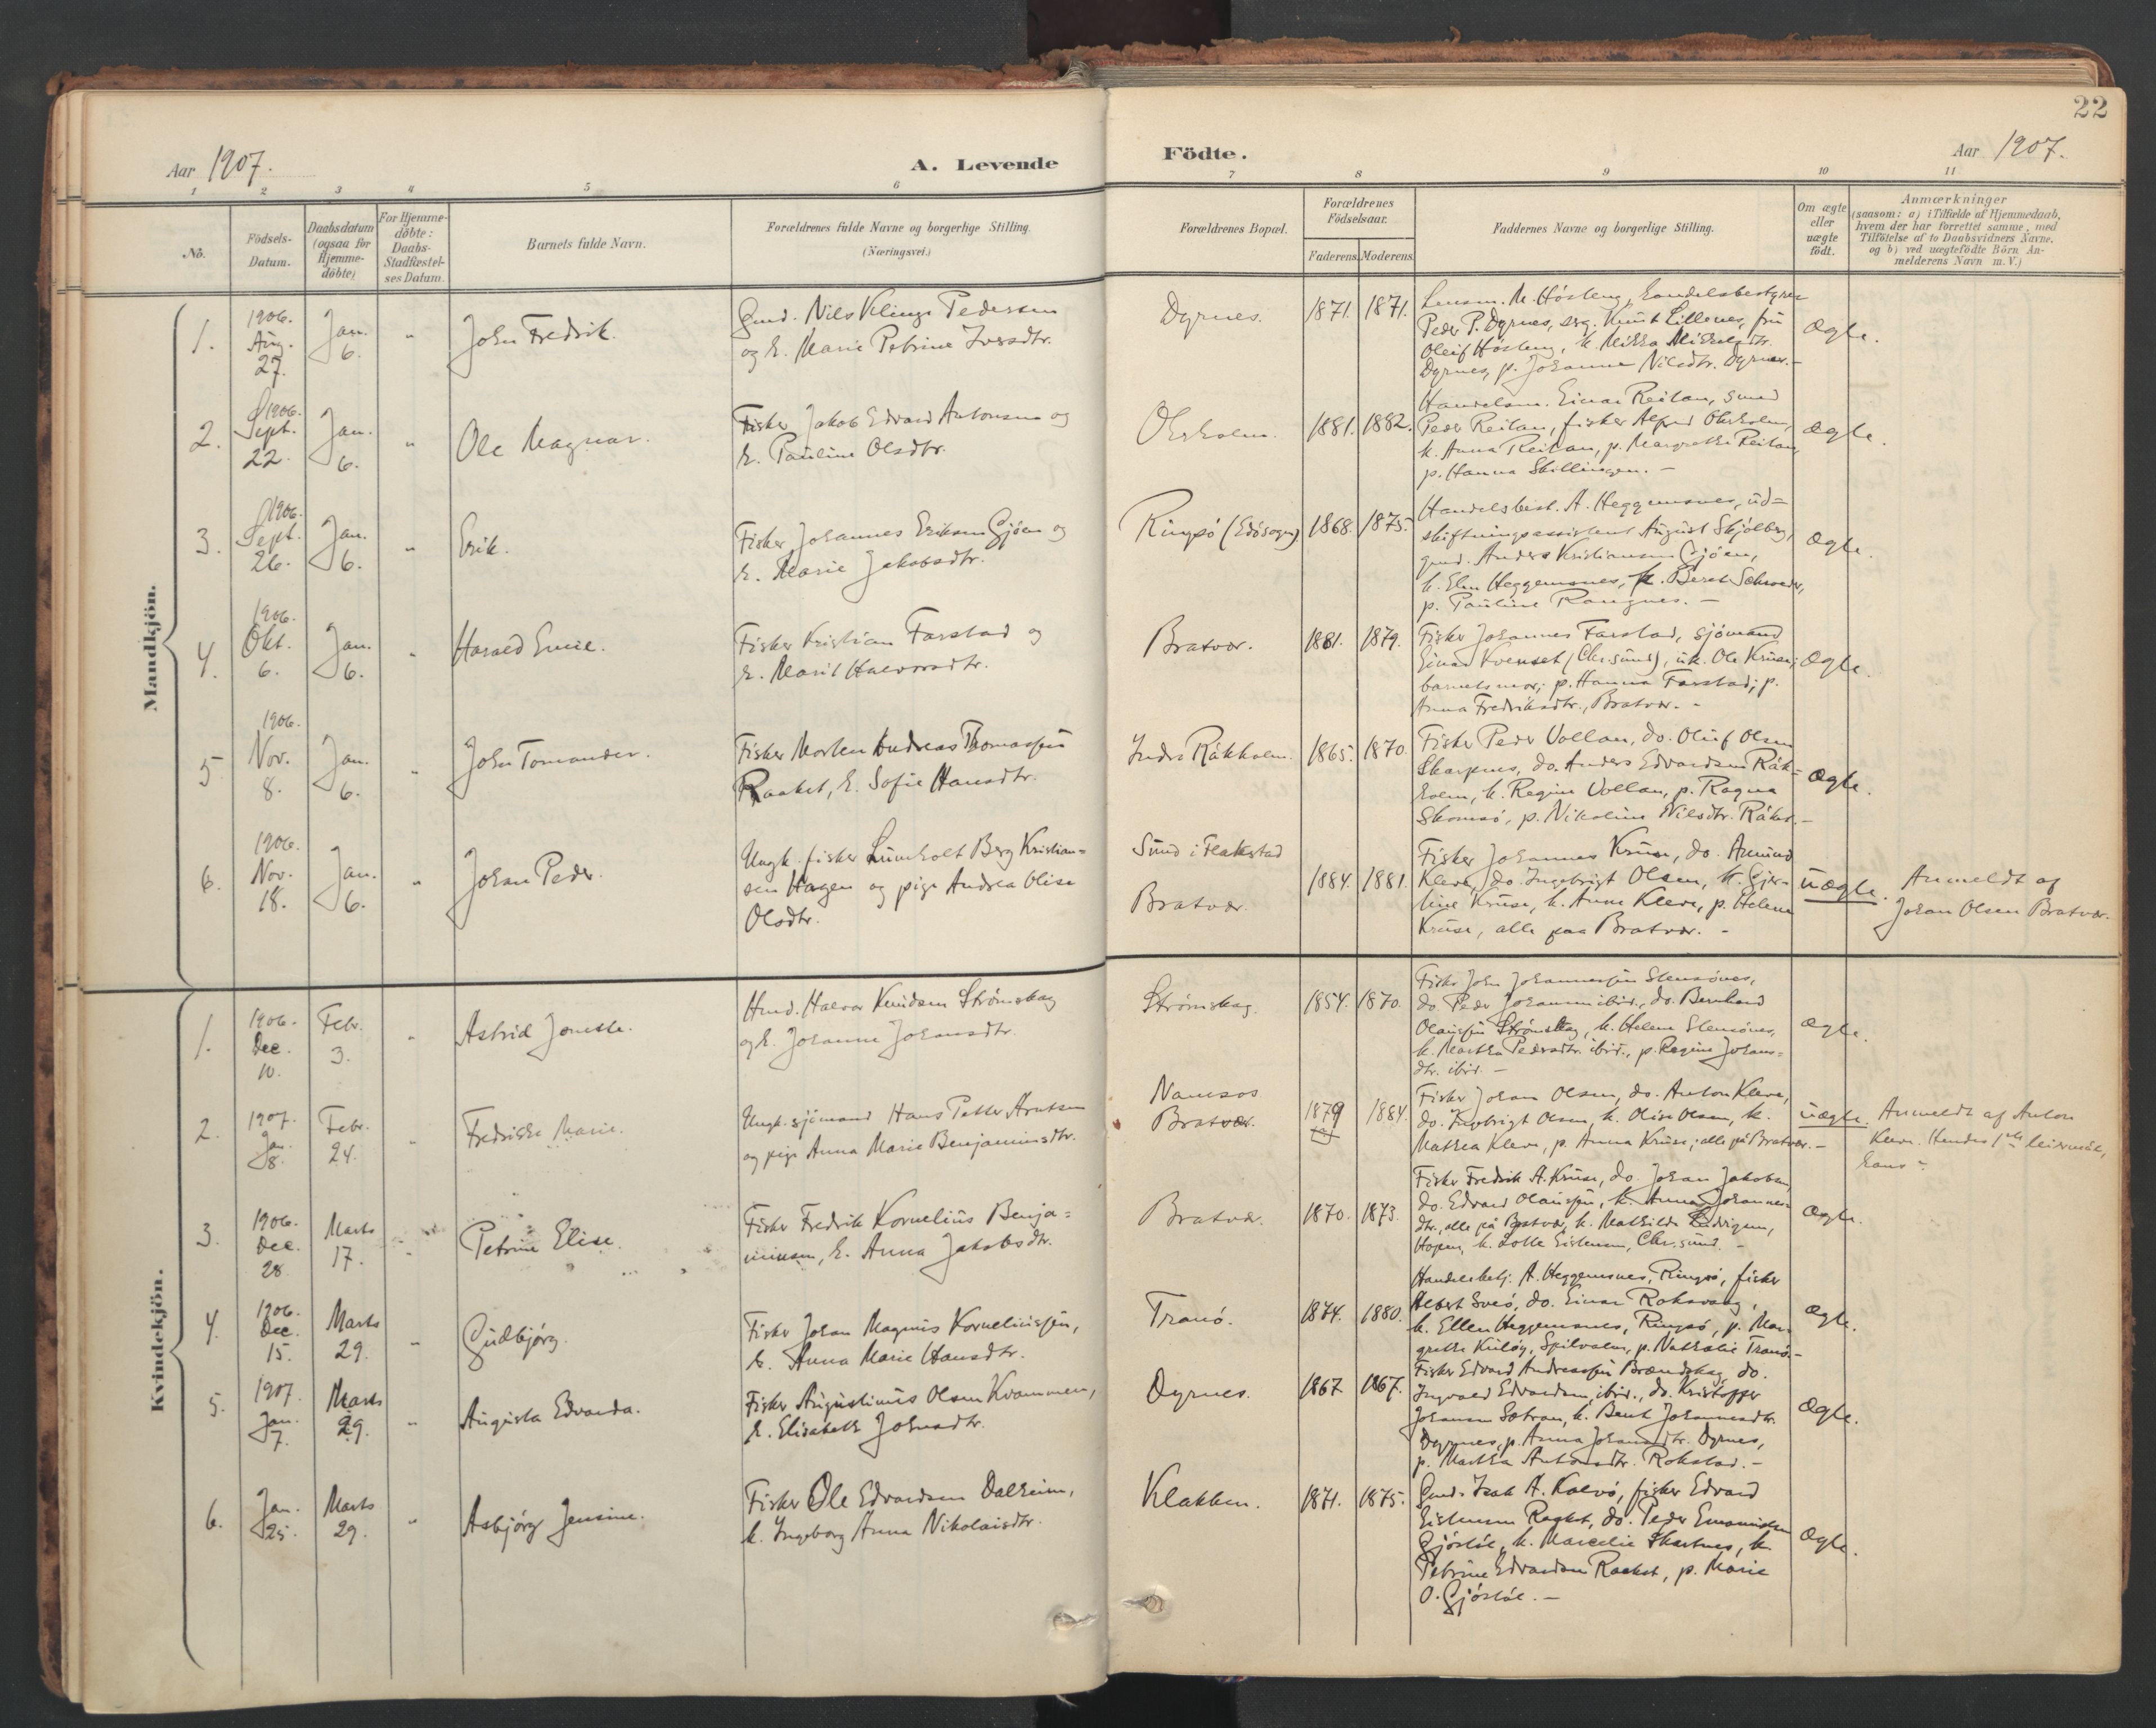 22
Aar 1907.
A. Levende
Födte.
Aar 1907.
1 2 3 4 5 6 7 8 9 10 11
No.
Födsels-
Datum.
Daabsdatum
(ogsaa for
Hjemme-
döbte)
For Hjemme-
döbte:
Daabs-
Stadfæstel-
ses Datum.
Barnets fulde Navn.
Forældrenes fulde Navne og borgerlige Stilling.
(Næringsvei.)
Forældrenes Bopæl.
Forældrenes
Födselsaar.
Faderens. Moderens.
Faddernes Navne og borgerlige Stilling.
Om ægte
eller
uægte
födt.
Anmærkninger
(saasom: a) i Tilfælde af Hjemmedaab,
hvem der har forrettet samme, med
Tilföielse af to Daabsvidners Navne.
og b) ved uægtefödte Börn An-
melderens Navn m.V.)
Mandkjön.
1.
1906.
Aug.
27.
Jan.
6.
"
John Fredrik.
Gmd. Nils Pedersen
og h. Marie Petrine Iversdtr.
Dyrnes.
1871. 1871.
Lensm. M. Hösteng, handelsbestyrer
Peder P. Dyrnes, Knut Lillenes, fru
Hösteng, k. Mikka Mikkelsdtr.
Dyrnes, p. Johanna Nilsdtr. Dyrnes.-
Ægte.
2.
1906.
Sept.
22.
Jan.
6.
"
Ole Magnar.
Fisker Jakob Edvard Antonsen og
h. Pauline Olsdtr.
1881. 1882.
Handelsm. Einar Reitan, smed
Peder Reitan, fisker Alfred
k. Anna Reitan, p. Margrethe Reitan,
p. Hanna Skillingen. -
Ægte.
3.
1906.
Sept.
26.
Jan.
6.
"
Erik.
Fisker Johannes Eriksen Gjöen og
h. Marie Jakobsdtr.
Ringsö (Edösogn)
1868. 1875.
Handelsbest. A. Heggemsnes, ud=
skiftningsassistent August Skjölberg,
gmd. Anders Kristiansen Gjöen,
k. Elen Heggemsnes, k. Beret Schrøder,
p. Pauline Rangnes. -
Ægte.
4.
1906.
Okt.
6.
Jan.
6.
"
Harald Emil.
Fisker Kristian Farstad og
h. Marit Halvorsdtr.
Bratvær.
1881. 1879.
Fisker Johannes Farstad, sjömand
Einar Kvenset (Chr.sund), uk. Ole Kruse;
barnets mor; p. Hanna Farstad; p.
Anna Fredriksdtr., Bratvær. -
Ægte.
5
1906.
Nov.
8.
Jan.
6.
"
John Tomander.
Fisker Morten Andreas Thomassen
Raaket, h. Sofie Hansdtr.
Indre Råkholm.
1865. 1870.
Fisker Peder Vollan, do. Oluf Olsen
Skarpnes, do. Anders Edvardsen Råk=
holm, k. Regine Vollan, p. Ragna
Skomsö, p. Nikoline Nilsdtr. Råket.-
Ægte.
6.
1906.
Nov.
18.
Jan.
6.
"
Johan Peder.
Ungk. fisker Lumholt Berg Kristian=
sen Hagen og pige Andrea Olise
Olsdtr.
Sund i Flakstad
Bratvær.
1884. 1881.
Fisker Johannes Kruse, do. Amund
Kleve, do. Ingebrigt Olsen, k. Gjer-
tine Kruse, k. Anne Kleve, p. Helene
Kruse, alle paa Bratvær. -
Uægte.
Anmeldt af
Johan Olsen Bratvær.
Kvindekjön.
1.
1906.
Dec.
10.
Febr.
3.
"
Astrid
Hmd. Halvor Knudsen Strömskag
og h. Johanne Johansdtr.
Strömskag.
1854. 1870.
Fisker John Johannessen Stensönes,
do. Peder Johannsen ibid., do. Bernhard
Olaussen Strömskag, k. Helene Stensönes,
k. Martha Pedersdtr. ibid., p. Regine Johans=
dtr. ibid. -
Ægte.
2.
1907.
Jan.
8.
Febr.
24.
"
Fredrikke Marie.
Ungk. sjömand Hans Petter Arntsen
og pige Anna Marie Benjaminsdtr.
Namsos
Bratvær.
1879 1884.
Fisker Johan Olsen, do. Anton Kleve,
do. Ingebrigt Olsen, k. Olise Olsen, k.
Mathea Kleve, p. Anna Kruse; alle på Bratvær. -
Uægte.
Anmeldt af Anton
Kleve. Hendes 1ste leiermål,
hans
3.
1906.
Dec.
28.
Marts
17.
"
Petrine Elise.
Fisker Fredrik Kornelius Benja=
minsen, h. Anna Jakobsdtr.
Bratvær.
1870. 1873.
Fisker Fredrik A. Kruse, do. Johan Jakobsen,
do. Edvard Olaussen, k. Anna Johannes-
dtr., alle på Bratvær, k. Mathilde Ludvigsen,
Hopen, k. Lotte Eistensen, Chr.sund. -
Ægte.
4.
1906.
Dec.
15.
Marts
29.
"
Gudbjörg.
Fisker Johan Magnus Korneliussen,
h. Anna Marie Hansdtr.
Tranö.
1874. 1880.
Handelsbetj. A. Heggemsnes, Ringsö, fisker
Albert Sveö, do. Einar Roksvaag,
k. Ellen Heggemsnes, Ringsö, p. Mar-
grethe, p. Nathalie Tranö. -
Ægte.
5.
1907.
Jan.
7.
Marts
29.
"
Augusta Edvarda.
Fisker Augustinus Olsen Kvammen,
h. Elisabeth Johnsdtr.
Dyrnes.
1867. 1867.
Fisker Edvard Andreassen Brændskag, do.
Ingvald Edvardsen, ibid., do. Kristoffer
Johansen Sætran, k. Berit Johannesdtr.
Dyrnes, p. Anna Johansdtr. Dyrnes,
p. Martha Antonsdtr. Rokstad. -
Ægte.
6.
Jan.
25.
Marts
29.
"
Asbjörg Jensine.
Fisker Ole Edvardsen Dalheim,
h. Ingeborg Anna Nikolaisdtr.
Klakken.
1871. 1875.
Gmd. Isak A. Kalvö, fisker Edvard
Eistensen Raaket, do. Peder
k. Marcelie k.
Petrine Edvardsen Raaket, p. Marie
O.
Ægte.